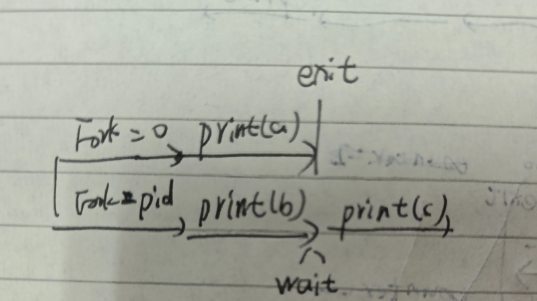 exit
Fork = 0 print(a)
Fork = pid print(b) print(c)
wait